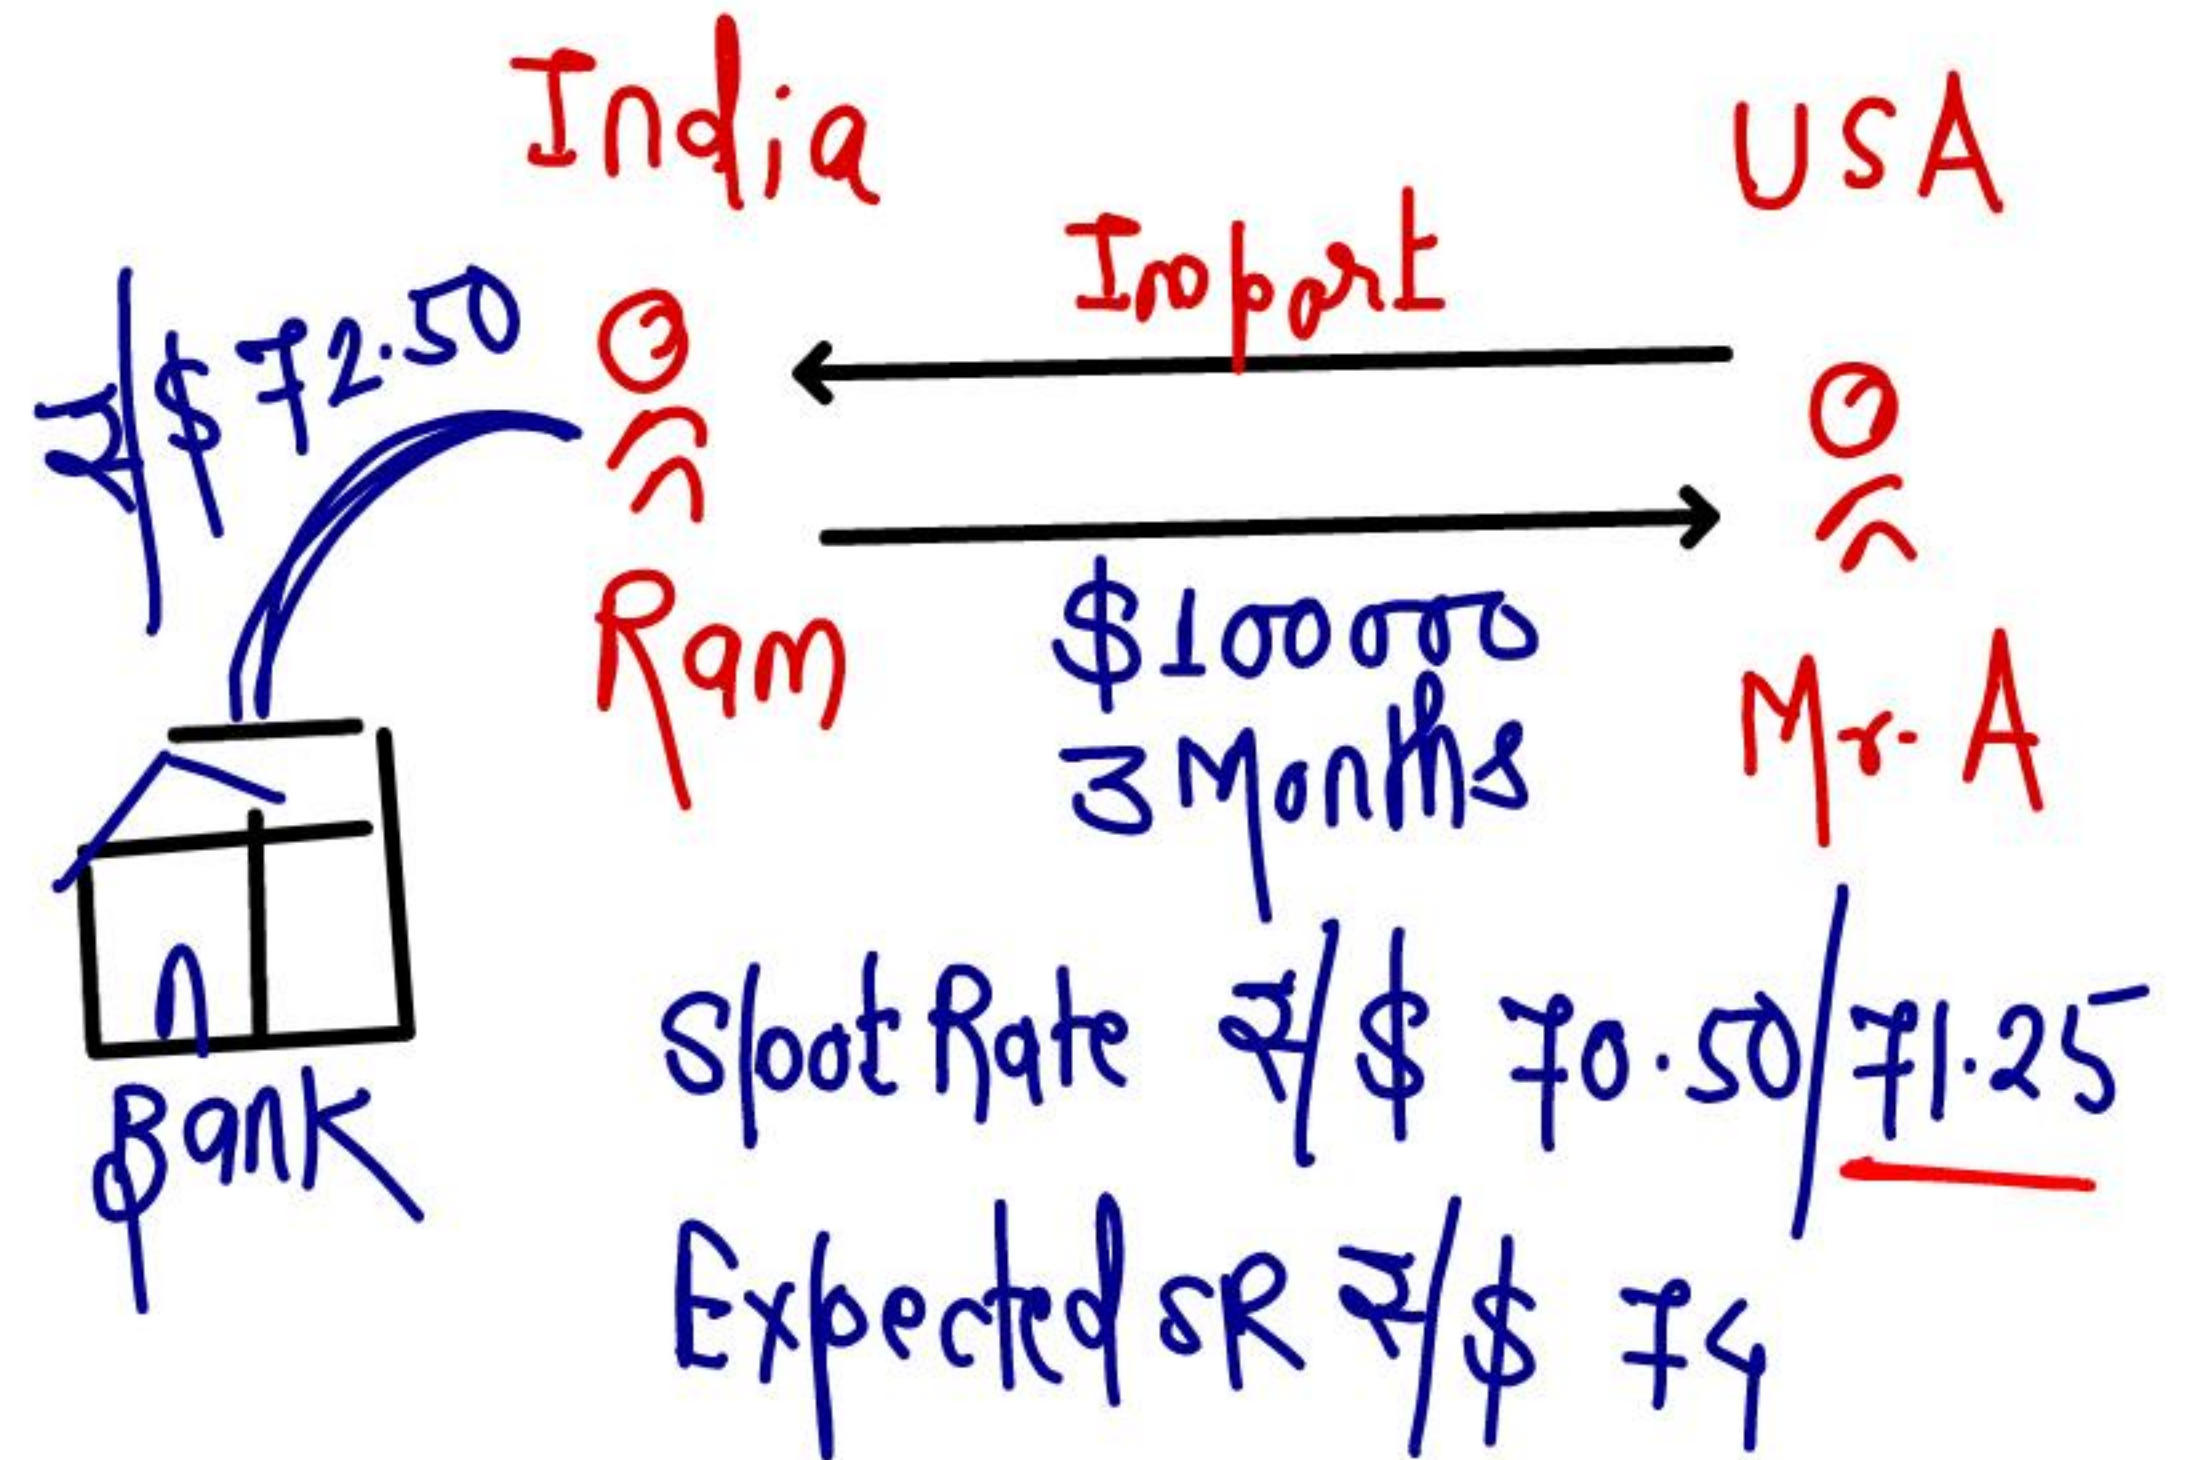 India
USA
Import
₹/$ 72.50
$100000
3 Months
Ram
Mr. A
Bank
Spot Rate ₹/$ 70.50/71.25
Expected SR ₹/$ 74